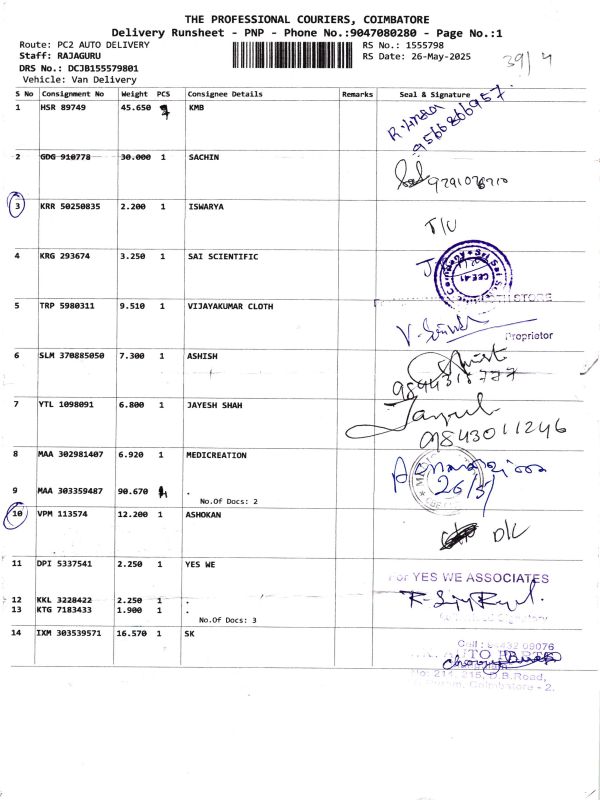 THE PROFESSIONAL COURIERS, COIMBATORE
Delivery Runsheet - PNP - Phone No.:9047080280 - Page No.:1
Route: PC2 AUTO DELIVERY
RS No.: 1555798
Staff: RAJAGURU
RS Date: 26-May-2025
39/4
DRS No.: DCJB155579801
Vehicle: Van Delivery
S No Consignment No Weight PCS Consignee Details Remarks Seal & Signature
1 HSR 89749 45.650 KMB
9566866957
2 GDG 910778 30.000 1 SACHIN
3 KRR 50250835 2.200 1 ISWARYA
T/U
4 KRG 293674 3.250 1 SAI SCIENTIFIC
5 TRP 5980311 9.510 1 VIJAYAKUMAR CLOTH
STORE
Proprietor
6 SLM 370885050 7.300 1 ASHISH
7 YTL 1098091 6.800 1 JAYESH SHAH
9843011246
8 MAA 302981407 6.920 1 MEDICREATION
26/5/
9 MAA 303359487 90.670 .
No.Of Docs: 2
10 VPM 113574 12.200 1 ASHOKAN
D/L
11 DPI 5337541 2.250 1 YES WE
For YES WE ASSOCIATES
12 KKL 3228422 2.250 1 .
13 KTG 7183433 1.900 1 .
No.Of Docs: 3
14 IXM 303539571 16.570 1 SK
Cell : 94432 09076
AUTO PARTS
No: 214, 215, D.B.Road,
Coimbatore - 2.